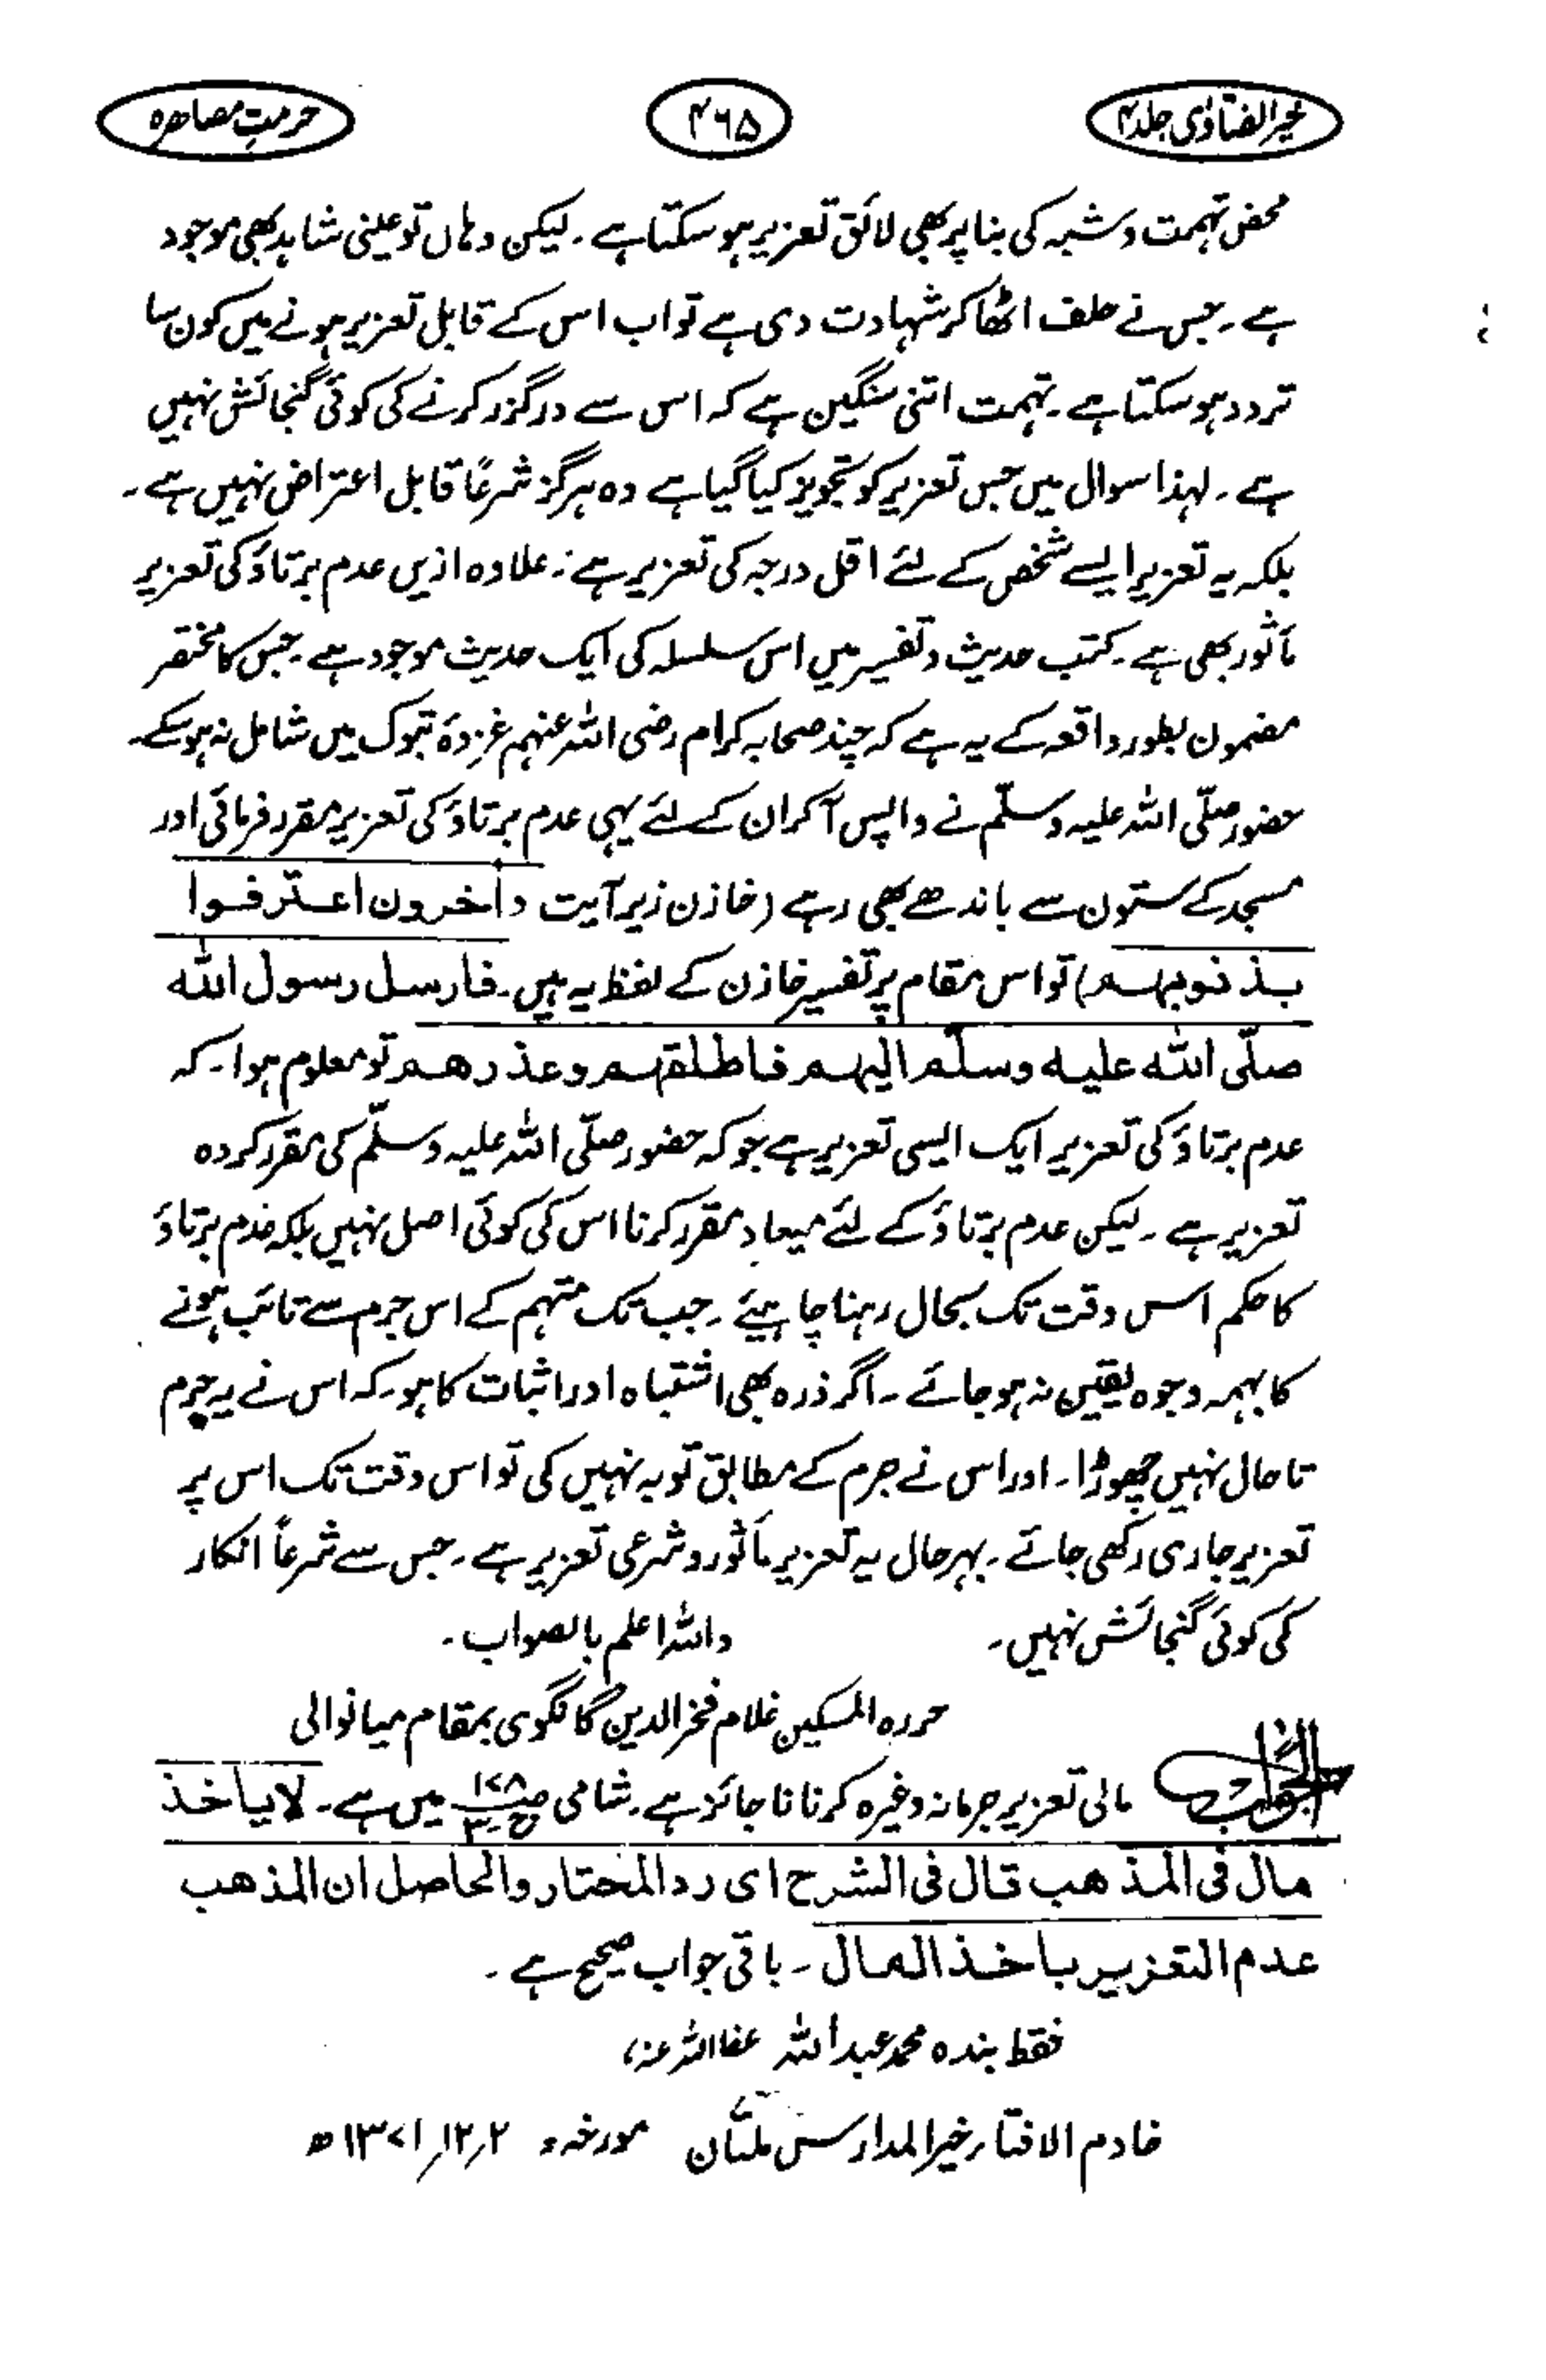 خیر الفتاوٰی جلد ۴ ۴۶۵ حرمتِ مصاہرہ
محض تہمت و شبہ کی بنا پر بھی لائق تعزیر ہو سکتا ہے۔ لیکن وہاں تو عینی شاہد بھی موجود
ہے۔ جس نے حلف اٹھا کر شہادت دی ہے تو اب اس کے قابل تعزیر ہونے میں کون سا
تردد ہو سکتا ہے۔ تہمت اتنی سنگین ہے کہ اس سے درگزر کرنے کی کوئی گنجائش نہیں
ہے۔ لہذا سوال میں جس تعزیر کو تجویز کیا گیا ہے وہ ہرگز شرعًا قابل اعتراض نہیں ہے۔
بلکہ یہ تعزیر ایسے شخص کے لئے اقل درجہ کی تعزیر ہے۔ علاوہ ازیں عدم برتاؤ کی تعزیر
مأثور بھی ہے۔ کتب حدیث و تفسیر میں اس سلسلہ کی ایک حدیث موجود ہے۔ جس کا مختصر
مضمون بطور واقعہ کے یہ ہے کہ چند صحابہ کرام رضی اللہ عنہم غزوۂ تبوک میں شامل نہ ہوسکے۔
حضور صلّی اللہ علیہ وسلّم نے واپس آکر ان کے لئے یہی عدم برتاؤ کی تعزیر مقرر فرمائی اور
مسجد کے ستون سے باندھے بھی رہے (خازن زیر آیت وأخرون اعترفوا
بذنوبہم) تو اس مقام پر تفسیر خازن کے لفظ یہ ہیں۔ فارسل رسول اللہ
صلّی اللہ علیہ وسلّم الیہم فاطلقہم وعذرھم تو معلوم ہوا۔ کہ
عدم برتاؤ کی تعزیر ایک ایسی تعزیر ہے جو کہ حضور صلّی اللہ علیہ وسلّم کی مقرر کردہ
تعزیر ہے۔ لیکن عدم برتاؤ کے لئے میعاد مقرر کرنا اس کی کوئی اصل نہیں بلکہ عدم برتاؤ
کا حکم اس وقت تک بحال رہنا چاہیئے۔ جب تک متہم کے اس جرم سے تائب ہونے
کا بہمہ وجوہ یقین نہ ہو جائے۔ اگر ذرہ بھی اشتباہ اور اثبات کا ہو۔ کہ اس نے یہ جرم
تاحال نہیں چھوڑا۔ اور اس نے جرم کے مطابق توبہ نہیں کی تو اس وقت تک اس پر
تعزیر جاری رکھی جائے۔ بہرحال یہ تعزیر مأثور و شرعی تعزیر ہے۔ جس سے شرعاً انکار
کی کوئی گنجائش نہیں۔ واللہ اعلم بالصواب۔
حررہ المسکین غلام فخر الدین گانگوی بمقام میانوالی
الجواب مالی تعزیر جرمانہ وغیرہ کرنا ناجائز ہے۔ شامی ص۱۷۸ ج۳ میں ہے۔ لا یاخذ
مال فی المذھب قال فی الشرح ای رد المختار والحاصل ان المذھب
عدم التعزیر باخذ المال۔ باقی جواب صحیح ہے۔
فقط بندہ محمد عبد اللہ عفا اللہ عنہ،
خادم الافتاء خیر المدارس ملتان مورخہ ۲؍۱۲؍۱۳۷۱ھ